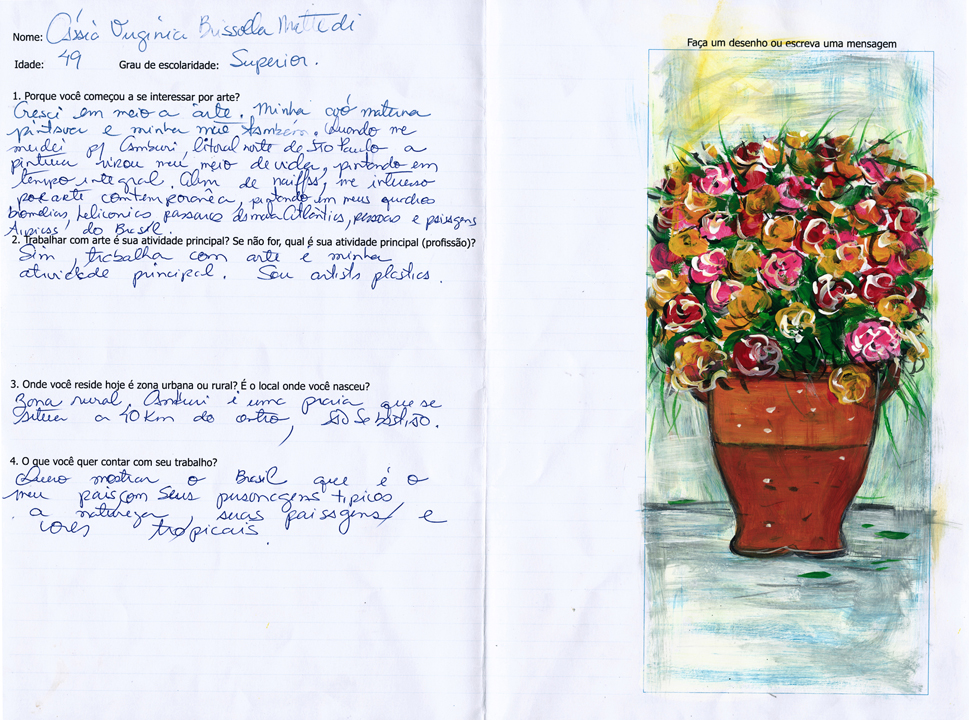 Nome: Cássia Virgínia Brissolla Mattedi
Idade: 49 Grau de escolaridade: Superior.
1. Porque você começou a se interessar por arte?
Cresci em meio a arte. Minha avó materna
pintava e minha mãe também. Quando me
mudei p/ Camburi, litoral norte de São Paulo a
pintura virou meu meio de vida, pintando em
tempo integral. Além de naiffs, me interesso
por arte contemporânea, pintando em meus quadros
bromélias, heliconias, passaros da mata Atlântica, pessoas e paisagens
tipicas do Brasil.
2. Trabalhar com arte é sua atividade principal? Se não for, qual é sua atividade principal (profissão)?
Sim, trabalha com arte e minha
atividade principal. Sou artista plastica.
3. Onde você reside hoje é zona urbana ou rural? É o local onde você nasceu?
Zona rural, Camburi é uma praia que se
situa a 40 Km do centro, São Sebastião.
4. O que você quer contar com seu trabalho?
Quero mostrar o Brasil que é o
meu pais com seus personagens tipicos,
a natureza, suas paisagens e
cores tropicais.
Faça um desenho ou escreva uma mensagem